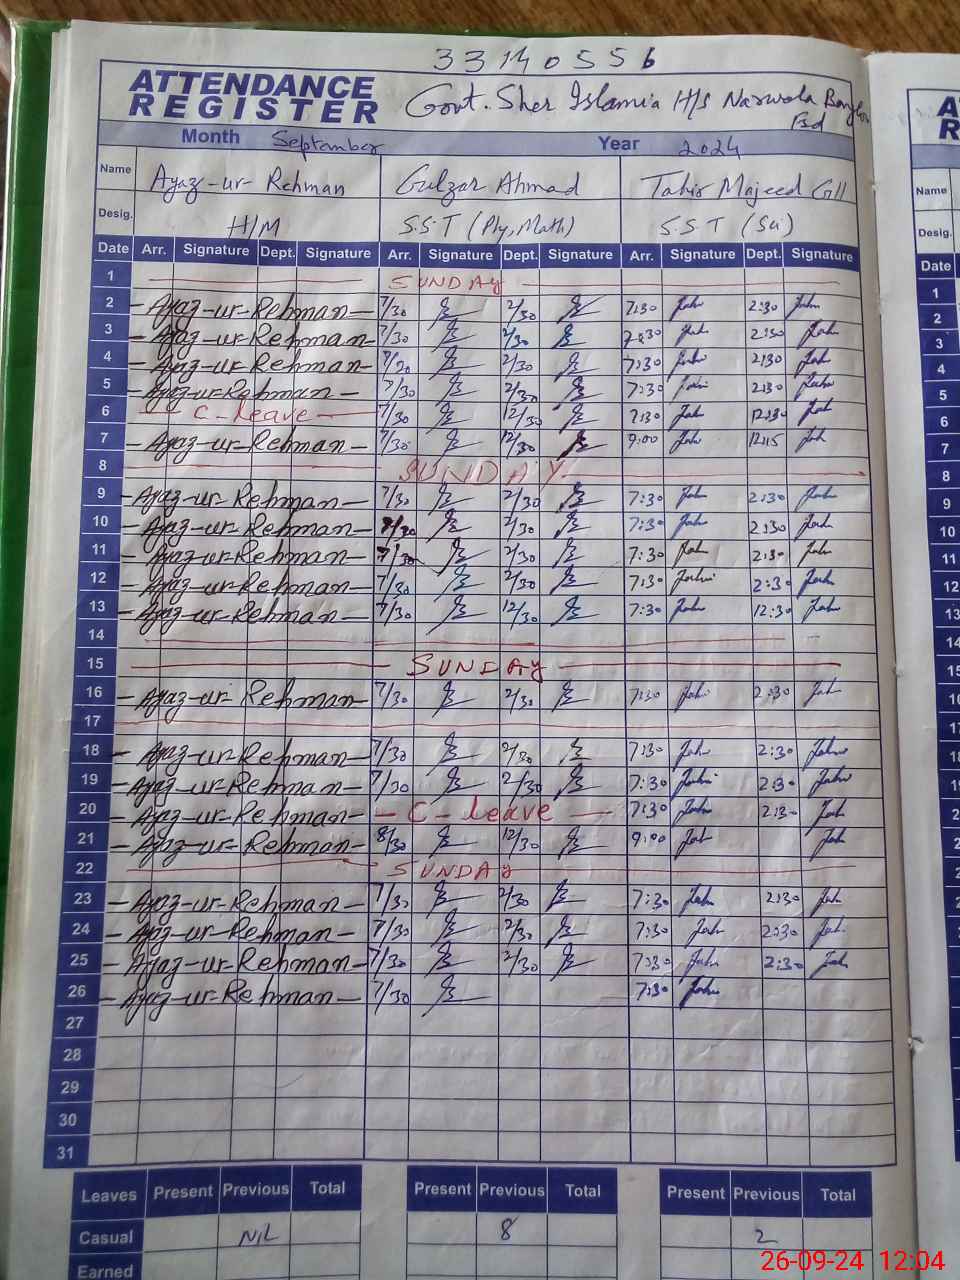 33140556
ATTENDANCE
REGISTER
Govt. Sher Islamia H/S Narwala
Month September Year 2024
Name Ayaz-ur-Rehman Gulzar Ahmad Tahir Majeed Gill
Desig. H/M S.S.T (Phy, Math) S.S.T (Sci)
Date Arr. Signature Dept. Signature Arr. Signature Dept. Signature Arr. Signature Dept. Signature
1 SUNDAY
2 Ayaz-ur-Rehman 7/30 2/30 7:30 2:30
3 Ayaz-ur-Rehman 7/30 2/30 7:30 2:30
4 Ayaz-ur-Rehman 7/30 2/30 7:30 2:30
5 Ayaz-ur-Rehman 7/30 2/30 7:30 2:30
6 C-Leave 7/30 12/30 7:30 12:30
7 Ayaz-ur-Rehman 7/30 12/30 9:00 12:15
8 SUNDAY
9 Ayaz-ur-Rehman 7/30 2/30 7:30 2:30
10 Ayaz-ur-Rehman 7/30 2/30 7:30 2:30
11 Ayaz-ur-Rehman 7/30 2/30 7:30 2:30
12 Ayaz-ur-Rehman 7/30 2/30 7:30 2:30
13 Ayaz-ur-Rehman 7/30 12/30 7:30 12:30
14
15 SUNDAY
16 Ayaz-ur-Rehman 7/30 2/30 7:30 2:30
17
18 Ayaz-ur-Rehman 7/30 2/30 7:30 2:30
19 Ayaz-ur-Rehman 7/30 2/30 7:30 2:30
20 Ayaz-ur-Rehman - C-Leave - 7:30 2:30
21 Ayaz-ur-Rehman 8/30 12/30 9:00
22 SUNDAY
23 Ayaz-ur-Rehman 7/30 2/30 7:30 2:30
24 Ayaz-ur-Rehman 7/30 2/30 7:30 2:30
25 Ayaz-ur-Rehman 7/30 2/30 7:30 2:30
26 Ayaz-ur-Rehman 7/30 7:30
27
28
29
30
31
Leaves Present Previous Total Present Previous Total Present Previous Total
Casual NIL 8 2
Earned
26-09-24 12:04